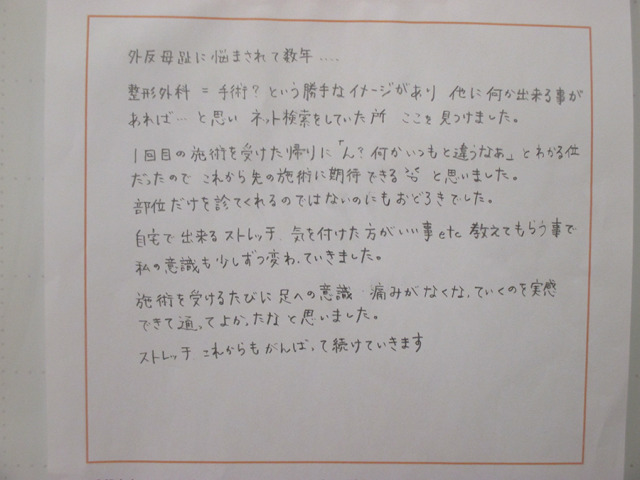 外反母趾に悩まされて数年....
整形外科 = 手術? という勝手なイメージがあり 他に何か出来る事が
あれば… と思い ネット検索をしていた所 ここを見つけました。
1回目の施術を受けた帰りに「ん? 何かいつもと違うなぁ」とわかる位
だったので これから先の施術に期待できる と思いました。
部位だけを診てくれるのではないのにもおどろきでした。
自宅で出来るストレッチ、気を付けた方がいい事 etc 教えてもらう事で
私の意識も少しずつ変わっていきました。
施術を受けるたびに足への意識 痛みがなくなっていくのを実感
できて通ってよかったなと思いました。
ストレッチ これからもがんばって続けていきます